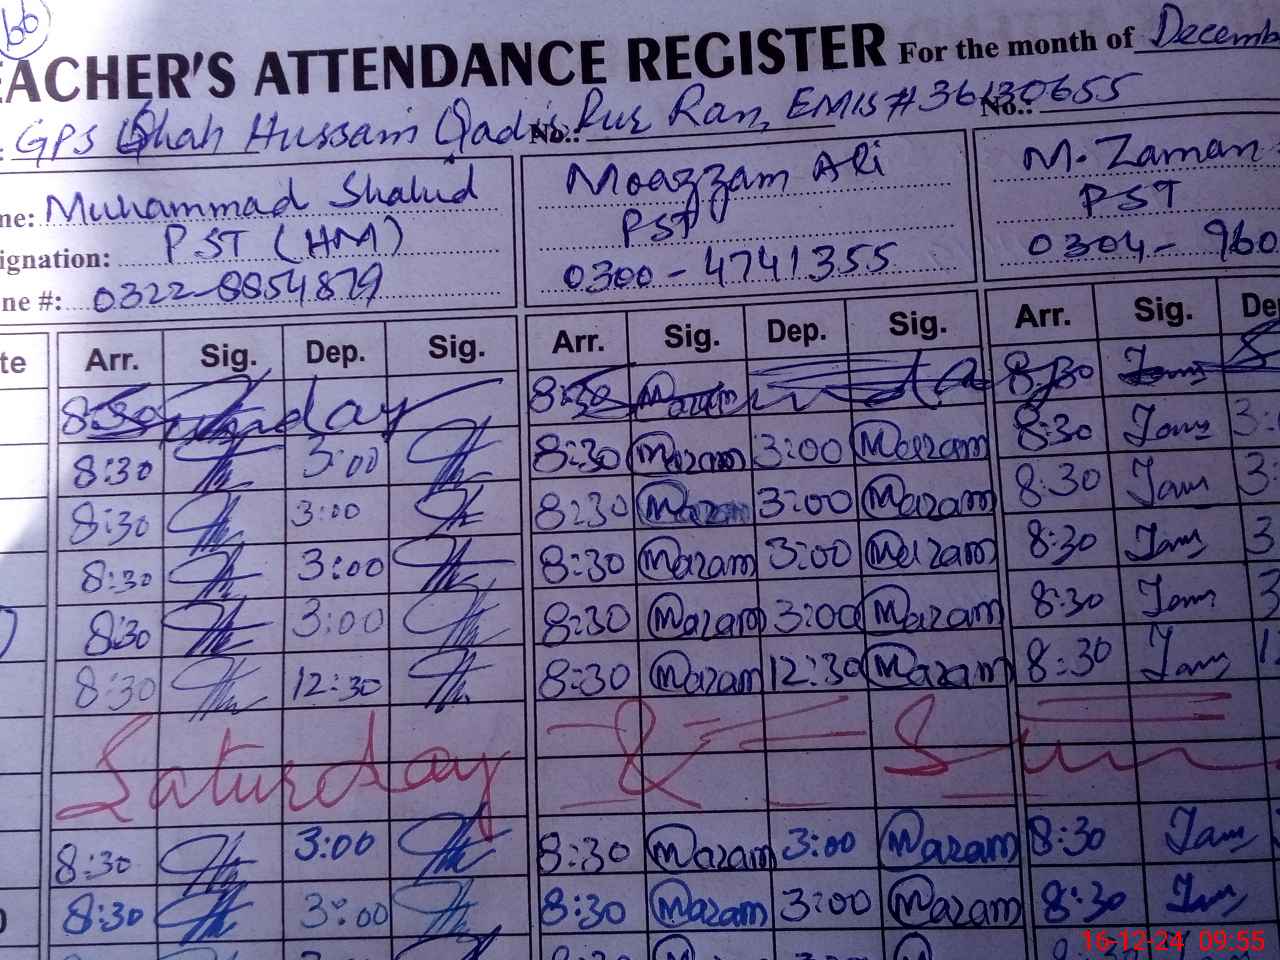 66
EACHER'S ATTENDANCE REGISTER For the month of Decemb
: GPS Shah Hussain Qadir No.: Pur Ran, EMIS # 36130655 No.:
ne: Muhammad Shahid Moazzam Ali M. Zaman
ignation: PST (HM) PST PST
ne #: 0322-8854879 0300-4741355 0304-960
te Arr. Sig. Dep. Sig. Arr. Sig. Dep. Sig. Arr. Sig. De
8:30 Sunday 8:30 Mazam 8:30
8:30 3:00 8:30 Mazam 3:00 Moazam 8:30 3:
8:30 3:00 8:30 Mazam 3:00 Mazam 8:30 3:
8:30 3:00 8:30 Mazam 3:00 Mazam 8:30 3
8:30 3:00 8:30 Mazam 3:00 Mazam 8:30 3
8:30 12:30 8:30 Mazam 12:30 Mazam 8:30 1
Saturday & Sun
8:30 3:00 8:30 Mazam 3:00 Mazam 8:30
8:30 3:00 8:30 Mazam 3:00 Mazam 8:30
16-12-24 09:55